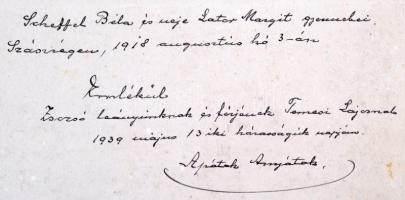 Scheffel Béla és neje Lator Margit gyermekei.
Szászrégen, 1918 augusztus hó 3-án
Emlékül
Zsozsó leányunknak és férjének Temesi Lajosnak
1939 május 13 iki házasságuk napján.
Apátok Anyátok.